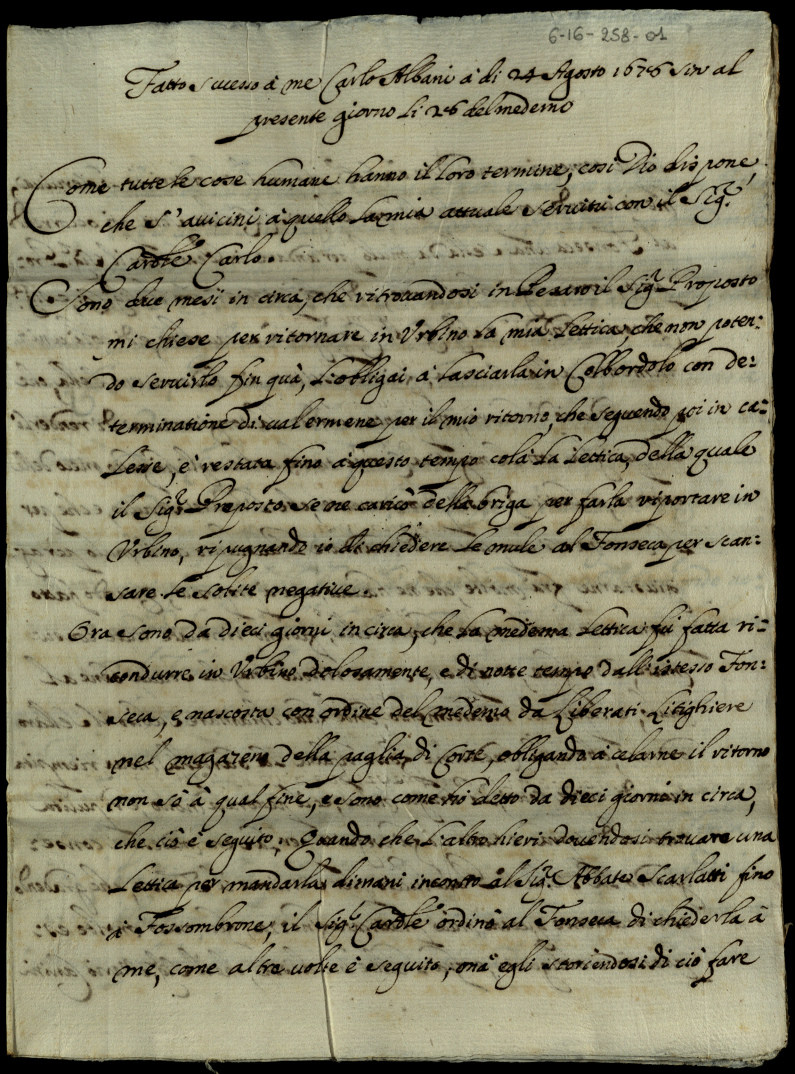 6-16-258-01
Fatto successo à me Carlo Albani à di 24 Agosto 1676 sin al
presente giorno li 26 del medemo
Come tutte le cose humane hanno il loro termine, così Dio dispone,
che s'auicini à quello la mia attuale seruitù con il Sig.r
Cardle Carlo.
Sono due mesi in circa, che ritrouandosi in Pesaro il Sig.r Proposto
mi chiese per ritornare in Vrbino la mia lettica, che non poten=
do seruirlo fin quà, l'obligai à lasciarla in Colbordolo con de=
terminatione di ualermene per il mio ritorno, che seguendo poi in ca=
lesse, è restata fino à questo tempo colà la lettica, della quale
il Sig.r Proposto se ne caricò della briga per farla riportare in
Vrbino, ripugnando io di chiedere le mule al Fonseca per scan=
sare le solite negatiue.
Ora sono da dieci giorni in circa, che la medema lettica fù fatta ri=
condurre in Vrbino dolosamente, e di notte tempo dall'istesso Fon=
seca, e nascosta con ordine del medemo da Liberati Litighiere
nel magazeno della paglia di Corte, obligando à celarne il ritorno
non sò à qual fine, e sono come hò detto da dieci giorni in circa,
che ciò è seguito; Quando che l'altro hieri douendosi trouare una
lettica per mandarla dimani incontro al Sig.r Abbate Scarlatti fino
à Fossombrone, il Sig.r Cardle ordinò al Fonseca di chiederla à
me, come altre uolte è seguito, mà egli storcendosi di ciò fare